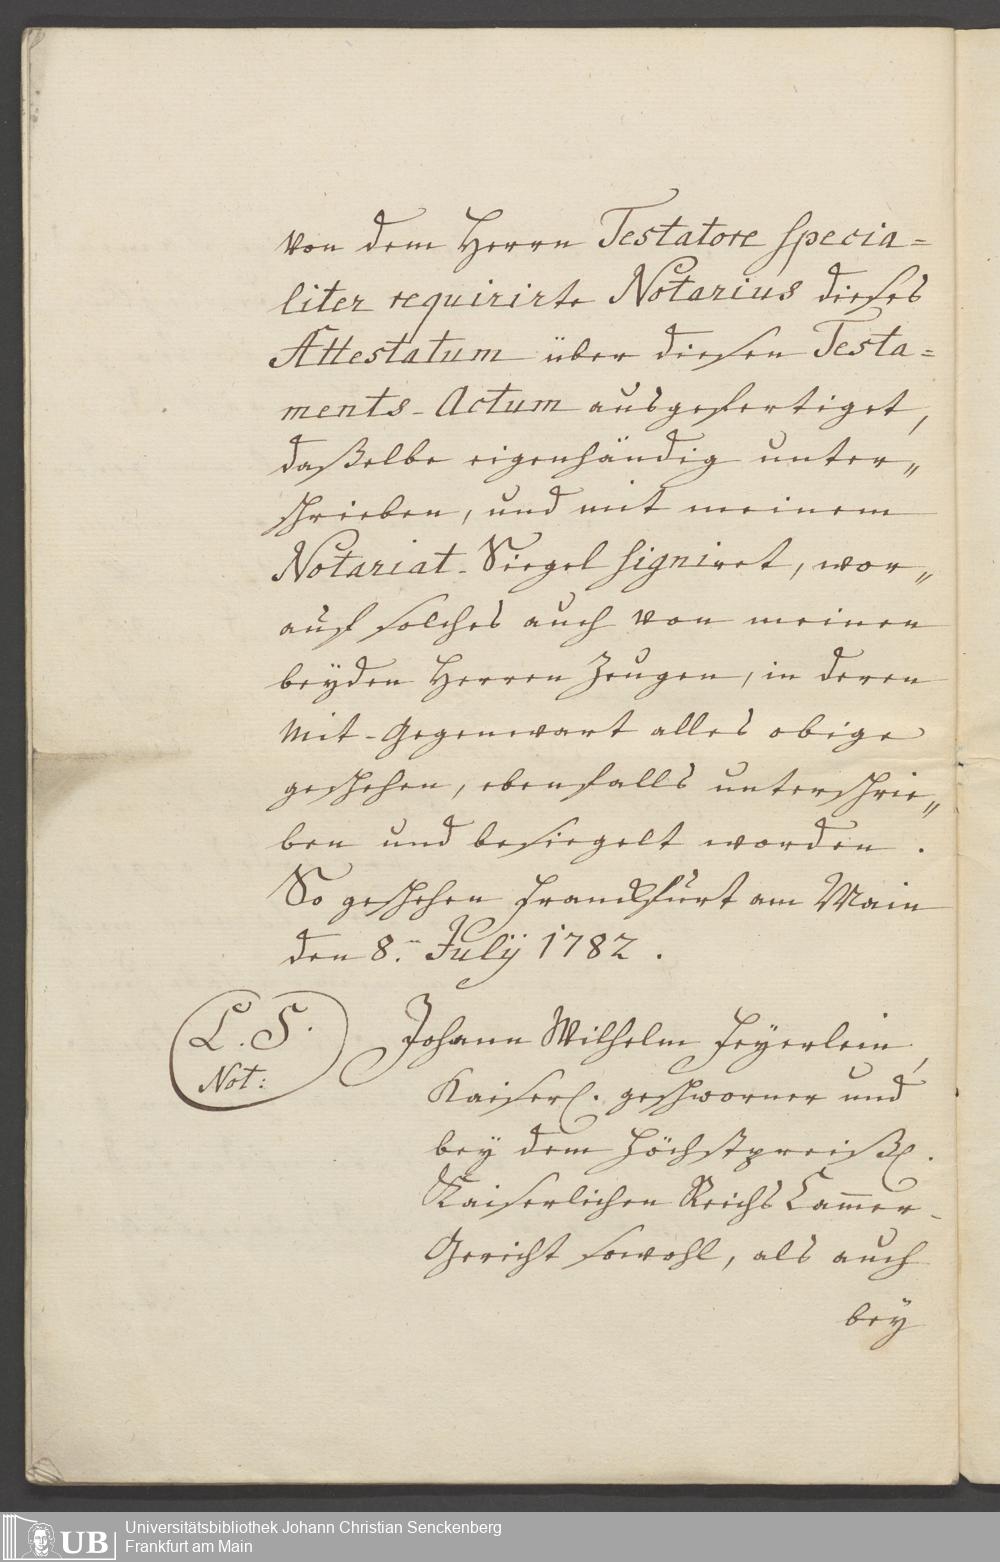 von dem Herrn Testatore specia=
liter requirirte Notarius dieses
Attestatum über diesen Testa=
ments-Actum ausgefertiget,
daßelbe eigenhändig unter„
schrieben, und mit meinem
Notariat-Siegel signiret, wor„
auf solches auch von meinen
beyden Herren Zeugen, in deren
Mit-Gegenwart alles obige
geschehen, ebenfalls unterschrie„
ben und besiegelt worden.
So geschehen Franckfurt am Main
den 8. Julij 1782.
L. S.
Not:
Johann Wilhelm Feyerlein,
Kaiserl. geschworner und
bey dem Höchstpreißl.
Kaiserlichen Reichs Cam̅er-
Gericht sowohl, als auch
bey
UB
Universitätsbibliothek Johann Christian Senckenberg
Frankfurt am Main